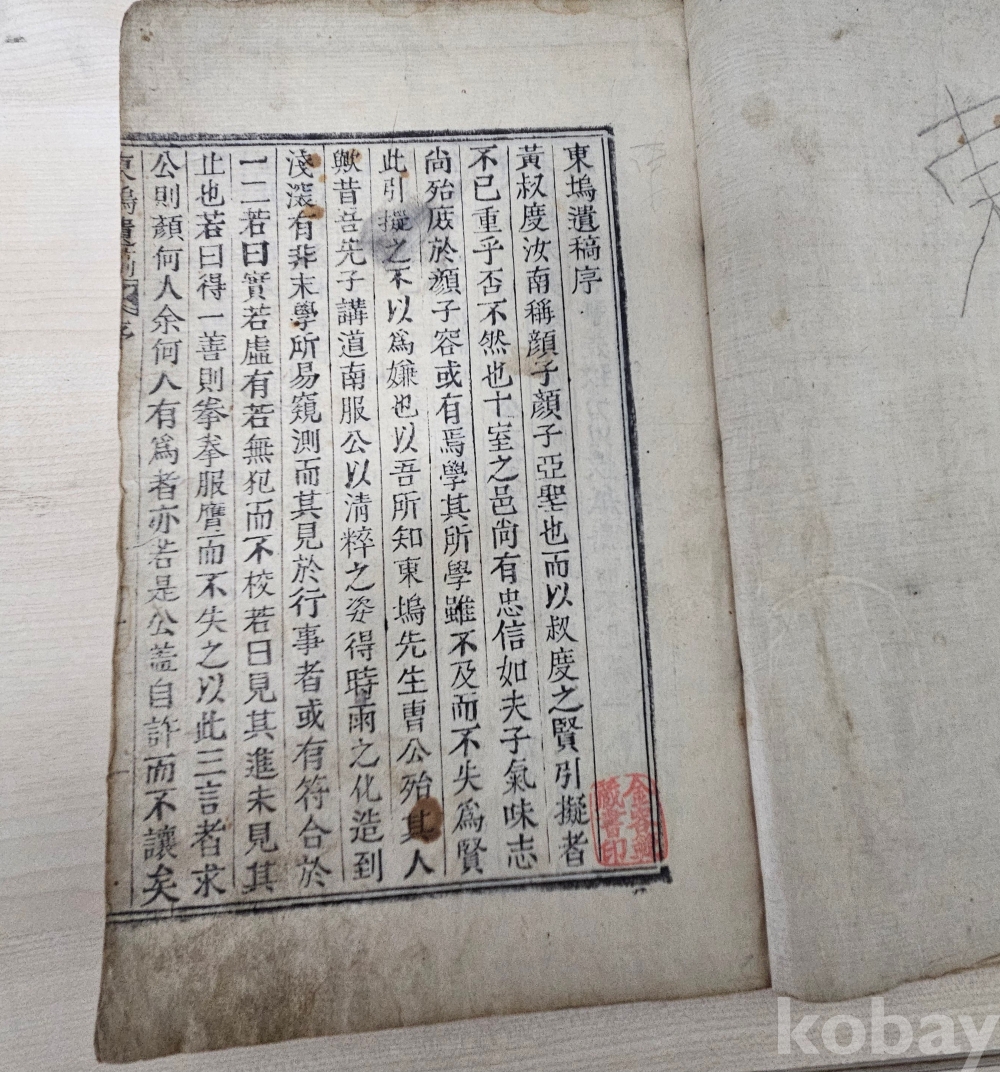 東塢遺稿序
黃叔度汝南稱顔子顔子亞聖也而以叔度之賢引擬者
不已重乎否不然也十室之邑尙有忠信如夫子氣味志
尙殆庶於顔子容或有焉學其所學雖不及而不失爲賢
此引擬之不以爲嫌也以吾所知東塢先生曺公殆其人
歟昔吾先子講道南服公以淸粹之姿得時雨之化造到
淺深有非末學所易窺測而其見於行事者或有符合於
一二若曰實若虛有若無犯而不校若曰見其進未見其
止也若曰得一善則拳拳服膺而不失之以此三言者求
公則顔何人余何人有爲者亦若是公蓋自許而不讓矣
東塢遺稿 序
藏書印
kobay